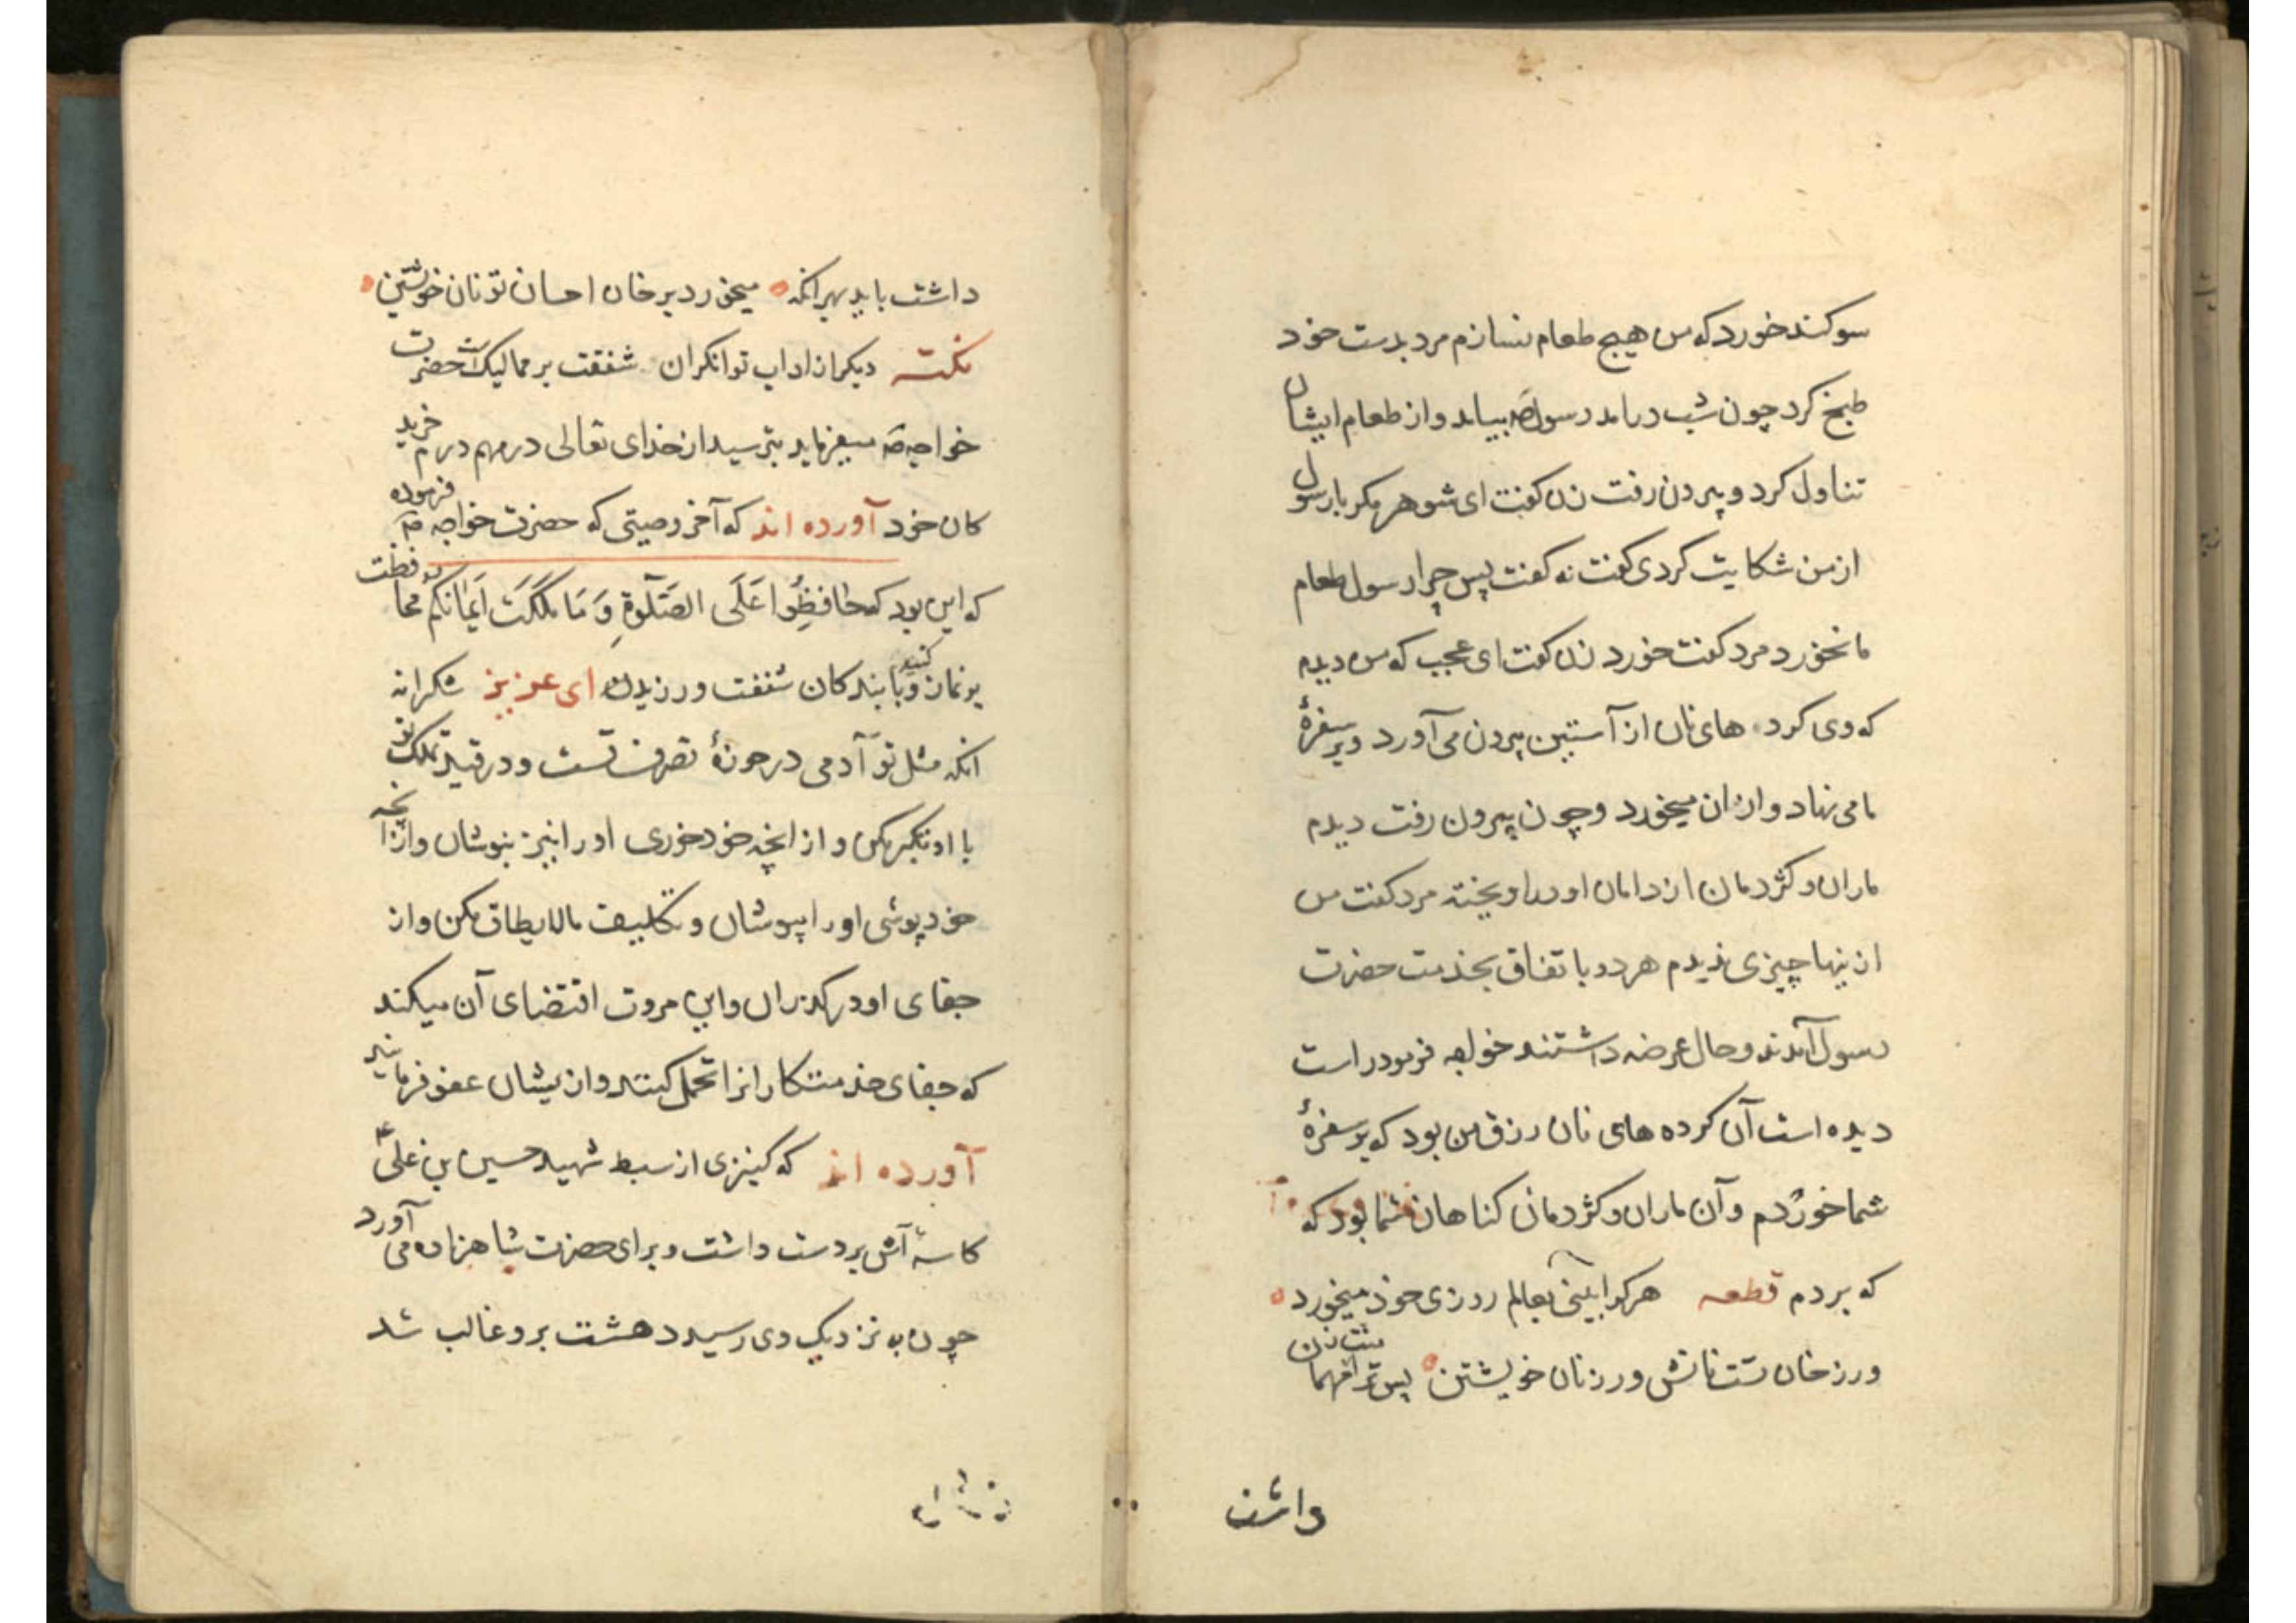 سوکند خورد که من هیچ طعام نسازم مرد بدست خود
طبخ کرد چون شب درامد رسول صَم بیامد و از طعام ایشان
تناول کرد و بیرون رفت زن کفت ای شوهر مکر با رسول
از من شکایت کردی کفت نه کفت پس چرا رسول طعام
ما نخورد مرد کفت خورد زن کفت ای عجب که من دیدم
که وی کرده های نان از آستین بیرون می آورد و بر سفرهٔ
ما می نهاد و از ان میخورد و چون بیرون رفت دیدم
ماران و کژدمان از دامان او در اویخته مرد کفت من
از ینها چیزی ندیدم هر دو با تفاق بخدمت حضرت
رسول آمدند و حال عرضه داشتند خواجه فرمود راست
دیده است آن کرده های نان رزق من بود که بر سفرهٔ
شما خوردم و آن ماران و کژدمان کناهان شما بود که
که بردم قطعه هر کرا بینی بعالم روزی خود میخورد
ور ز خان تست نانش ور ز نان خویشتن پس ترا مهمان
داشت
داشت باید بهر انکه میخورد بر خان احسان تو نان خویشتن
نکته دیکر از اداب توانکران شفقت بر ممالیک است حضرت
خواجه صَم میفرماید بترسید از خدای تعالی در مهم درم خرید
کان خود آورده اند که آخر وصیتی که حضرت خواجه صَم فرموده
که این بود که حافِظُوا عَلَی الصَّلٰوةِ وَ مَا مَلَکَتْ اَیمَانُکُم محافظت
بر نماز کنید و با بندکان شفقت ورزیدن ای عزیز شکرانه
انکه مثل تو آدمی در حوزهٔ تصرف تست و در قید تملک تو
با او تکبر مکن و از انچه خود خوری او را نیز بنوشان و از انچه
خود پوشی او را بپوشان و تکلیف ما لا یطاق مکن و از
جفای او در کذران و این مروت اقتضای آن میکند
که جفای خدمتکارانرا تحمل کنند و از یشان عفو فرمایند
آورده اند که کنیزی از سبط شهید حسین بن علی ع
کاسهٔ آش بر دست داشت و برای حضرت شاهزاده می آورد
چون به نزدیک وی رسید دهشت برو غالب شد